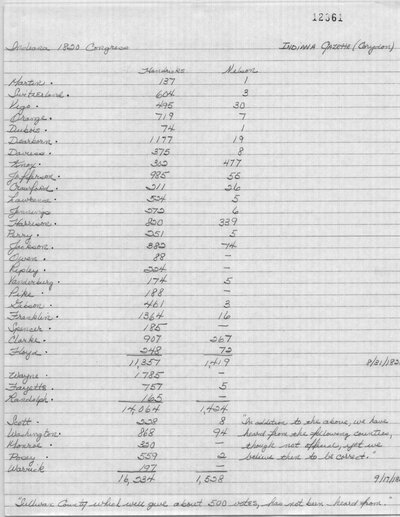 12361
Indiana 1820 Congress INDIANA GAZETTE (Corydon)
Hendricks Nelson
Martin • 137 1
Switzerland • 604 3
Vigo • 495 30
Orange • 719 7
Dubois • 74 1
Dearborn • 1177 19
Daviess • 375 8
Knox • 302 477
Jefferson • 985 55
Crawford • 211 26
Lawrence • 524 5
Jennings 272 6
Harrison • 820 339
Perry • 251 5
Jackson • 382 74
Owen • 88 —
Ripley • 224 —
Vanderburg • 174 5
Pike • 188 —
Gibson • 461 3
Franklin • 1364 16
Spencer • 185 —
Clarke • 907 267
Floyd • 248 72
11,357 1,419 8/31/182
Wayne • 1785 —
Fayette • 757 5
Randolph • 165 —
14,064 1,424
Scott • 228 8 "In addition to the above, we have
Washington • 868 94 heard from the following counties,
Monroe • 320 — though not official, yet we
Posey • 559 2 believe them to be correct."
Warrick 197 —
16,234 1,528 9/17/18
"Sullivan County which will give about 500 votes, has not been heard from."